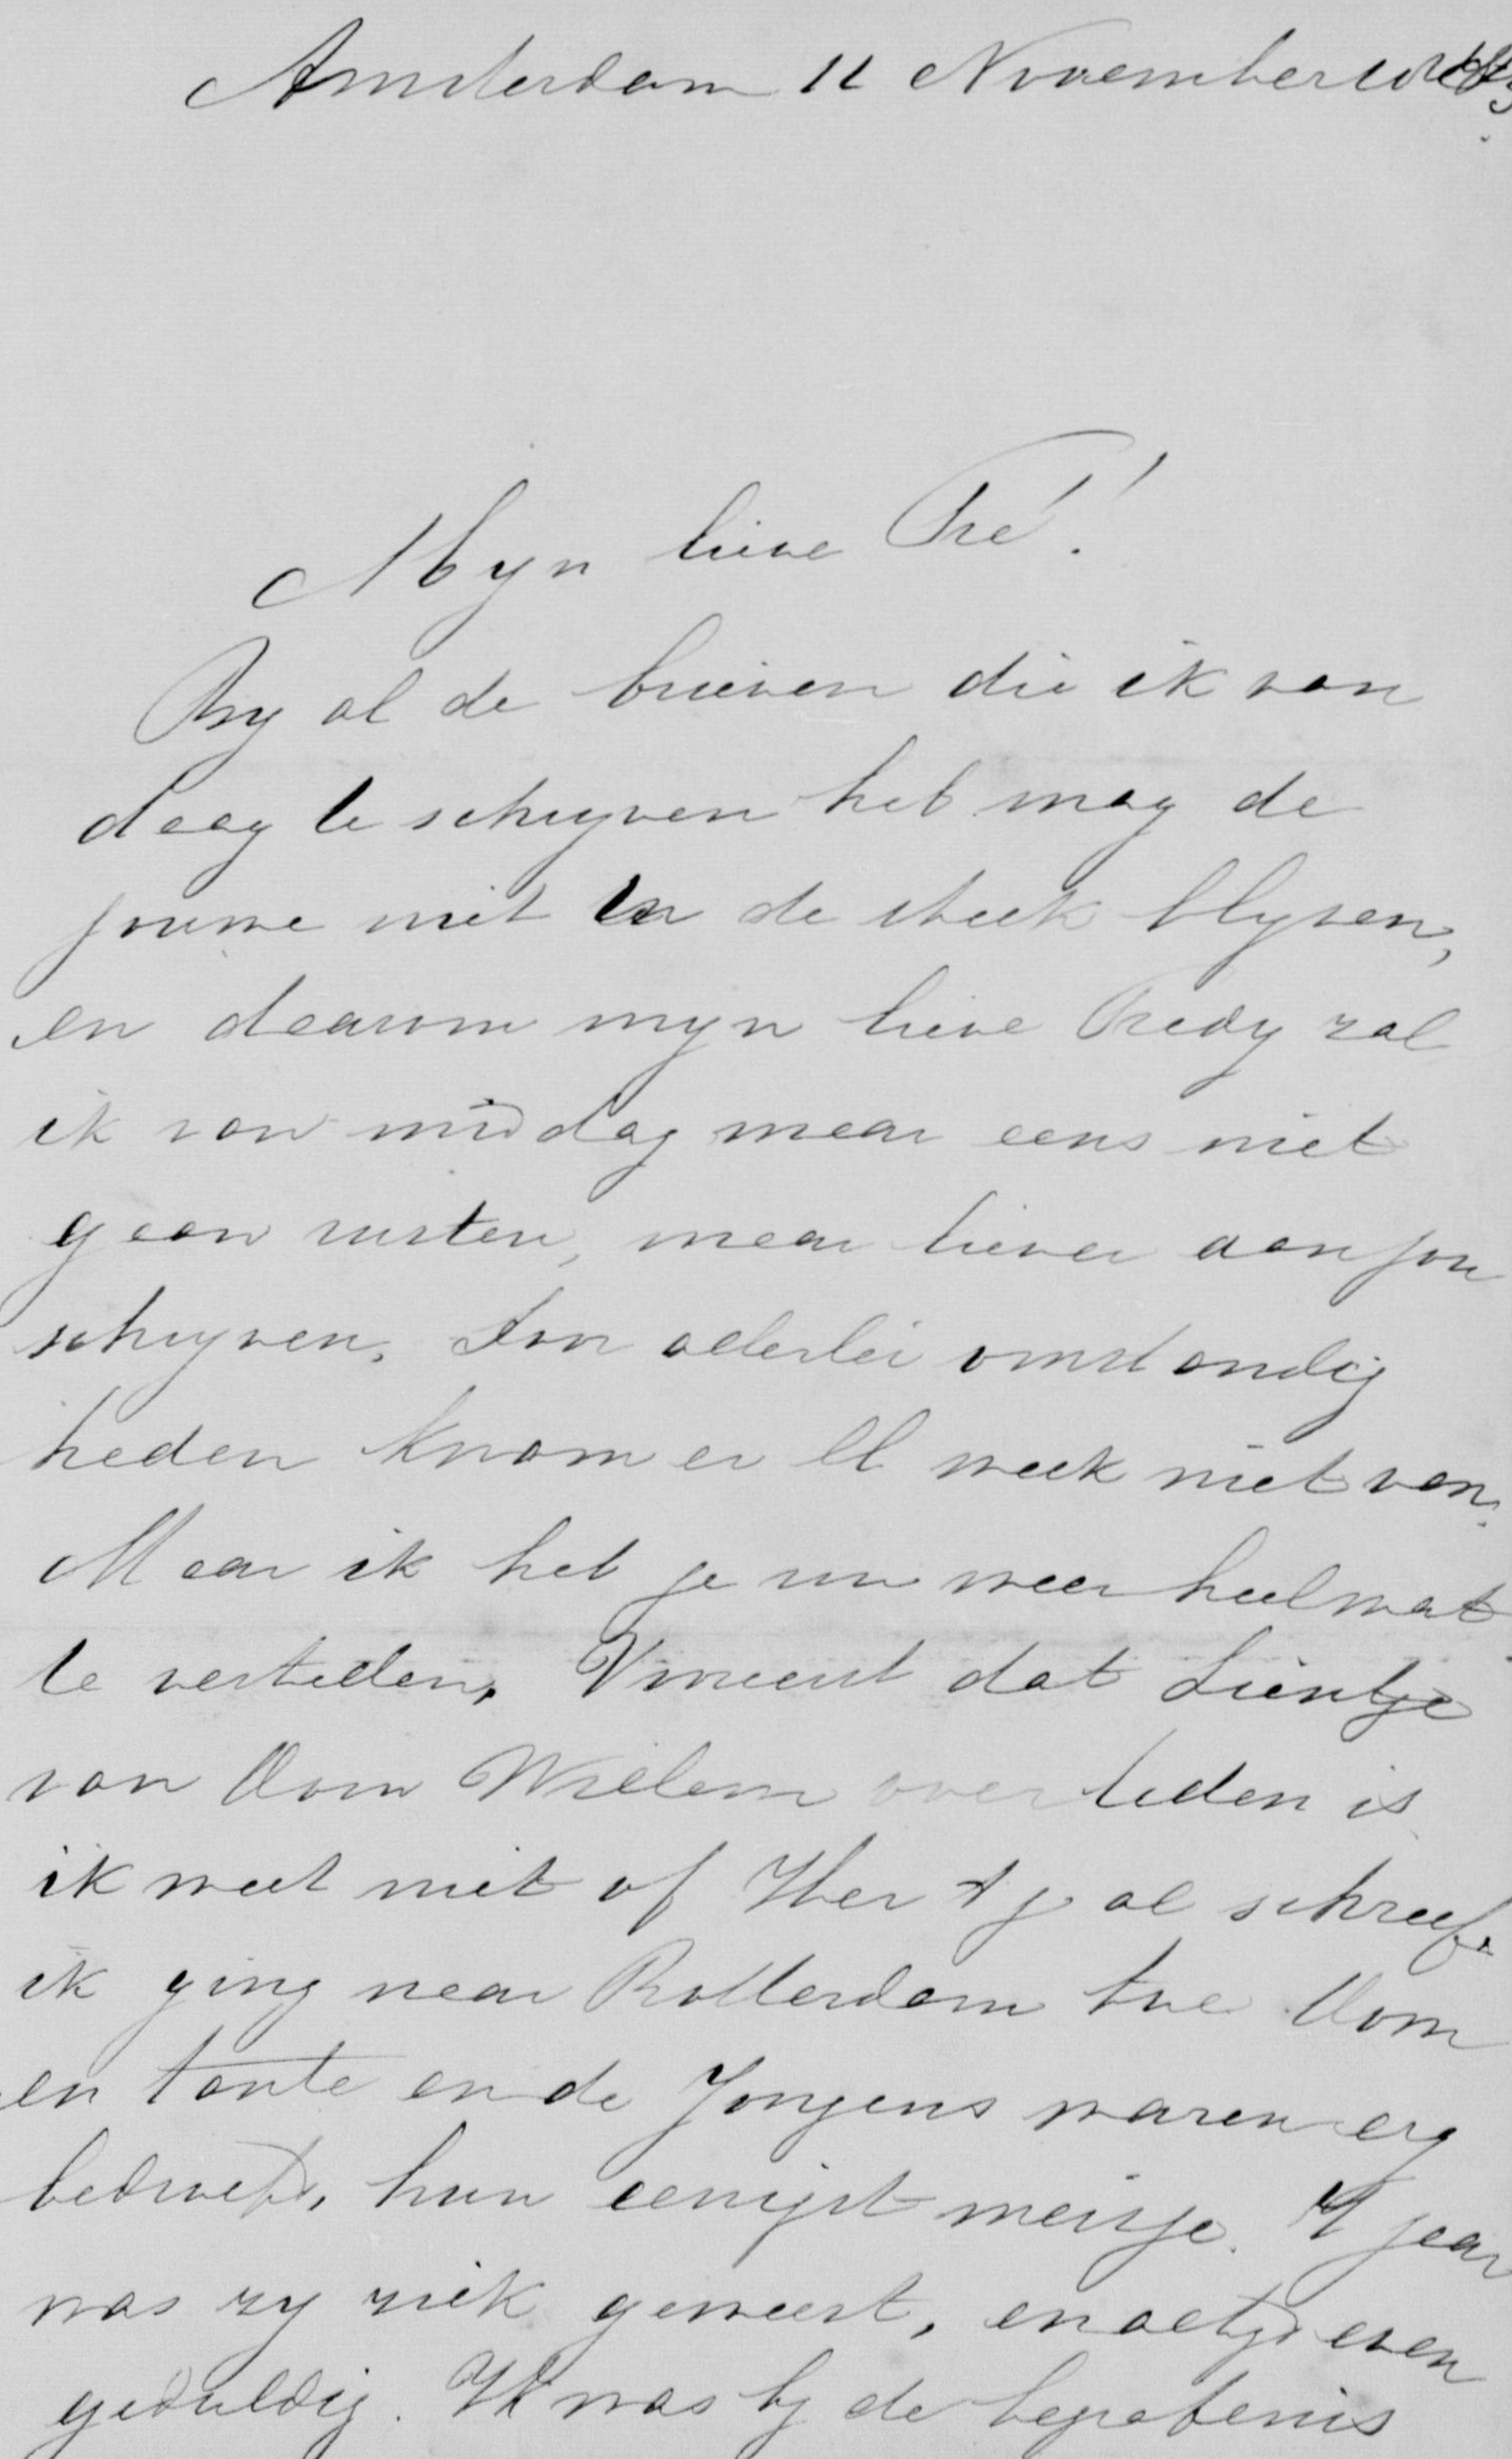 Amsterdam 11 November
Myn lieve Fré!
By al de brieven die ik van
daag te schryven heb mag de
jouwe niet in de steek blyven,
en daarom myn lieve Fredy zal
ik van middag maar eens niet
gaan rusten, maar liever aan jou
schryven. Door allerlei omstandig
heden kwam er ll week niet van.
Maar ik heb je nu weer heel wat
te vertellen. Vooreerst dat Lientje
van Oom Willem overleden is
ik weet niet of Her t je al schreef.
ik ging naar Rotterdam toe Oom
en tante en de Jongens waren erg
bedroefd, hun eenigst meisje. 4 jaar
was zy ziek geweest, en altyd even
geduldig. Ik was by de begrafenis